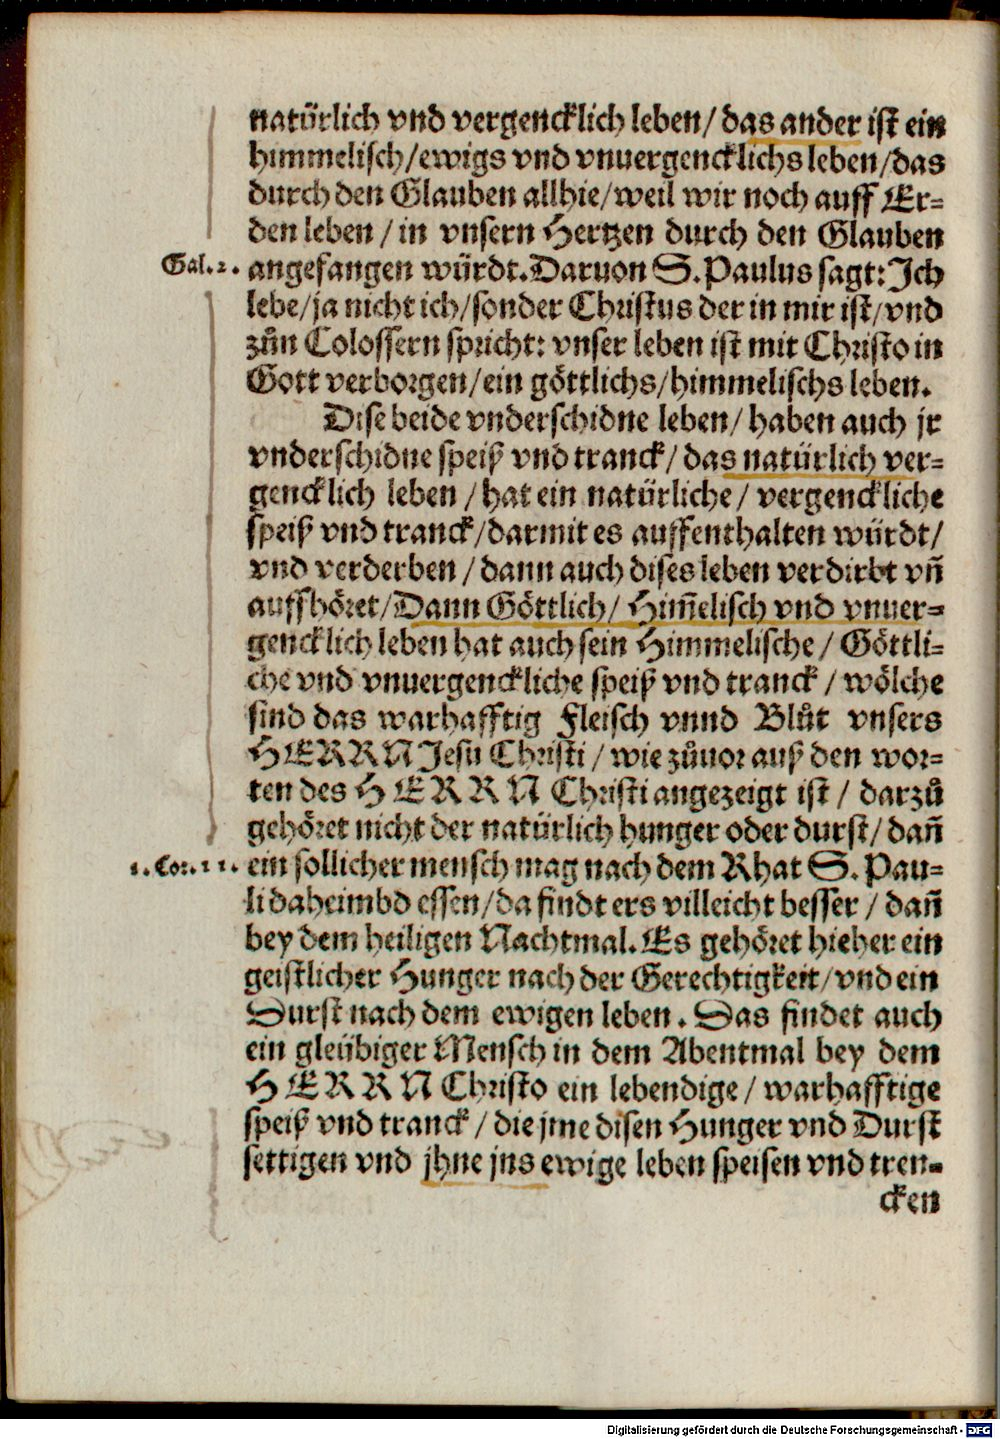 natürlich vnd vergencklich leben/ das ander ist ein
himmelisch/ewigs vnd vnuergencklichs leben/das
durch den Glauben allhie/weil wir noch auff Er-
den leben / in vnsern Hertzen durch den Glauben
Gal. 2. angefangen würdt. Daruon S. Paulus sagt: Ich
lebe/ja nicht ich/sonder Christus der in mir ist/vnd
zůn Colossern spricht: vnser leben ist mit Christo in
Gott verborgen/ein göttlichs/himmelischs leben.
Dise beide vnderschidne leben/ haben auch jr
vnderschidne speiß vnd tranck/ das natürlich ver-
gencklich leben / hat ein natürliche/ vergenckliche
speiß vnd tranck/darmit es auffenthalten würdt/
vnd verderben / dann auch dises leben verdirbt vñ
auffhöret/Dann Göttlich/ Him̃elisch vnd vnuer-
gencklich leben hat auch sein Himmelische/ Göttli-
che vnd vnuergenckliche speiß vnd tranck / wölche
sind das warhafftig Fleisch vnnd Blůt vnsers
HERRN Jesu Christi / wie zůuor auß den wor-
ten des HERRN Christi angezeigt ist / darzů
gehöret nicht der natürlich hunger oder durst/ dañ
1. Cor. 11. ein sollicher mensch mag nach dem Rhat S. Pau-
li daheimbd essen/da findt ers villeicht besser / dañ
bey dem heiligen Nachtmal. Es gehöret hieher ein
geistlicher Hunger nach der Gerechtigkeit/vnd ein
Durst nach dem ewigen leben. Das findet auch
ein gleübiger Mensch in dem Abentmal bey dem
HERRN Christo ein lebendige/ warhafftige
speiß vnd tranck / die jme disen Hunger vnd Durst
settigen vnd jhne jns ewige leben speisen vnd tren-
cken
Digitalisierung gefördert durch die Deutsche Forschungsgemeinschaft - DFG